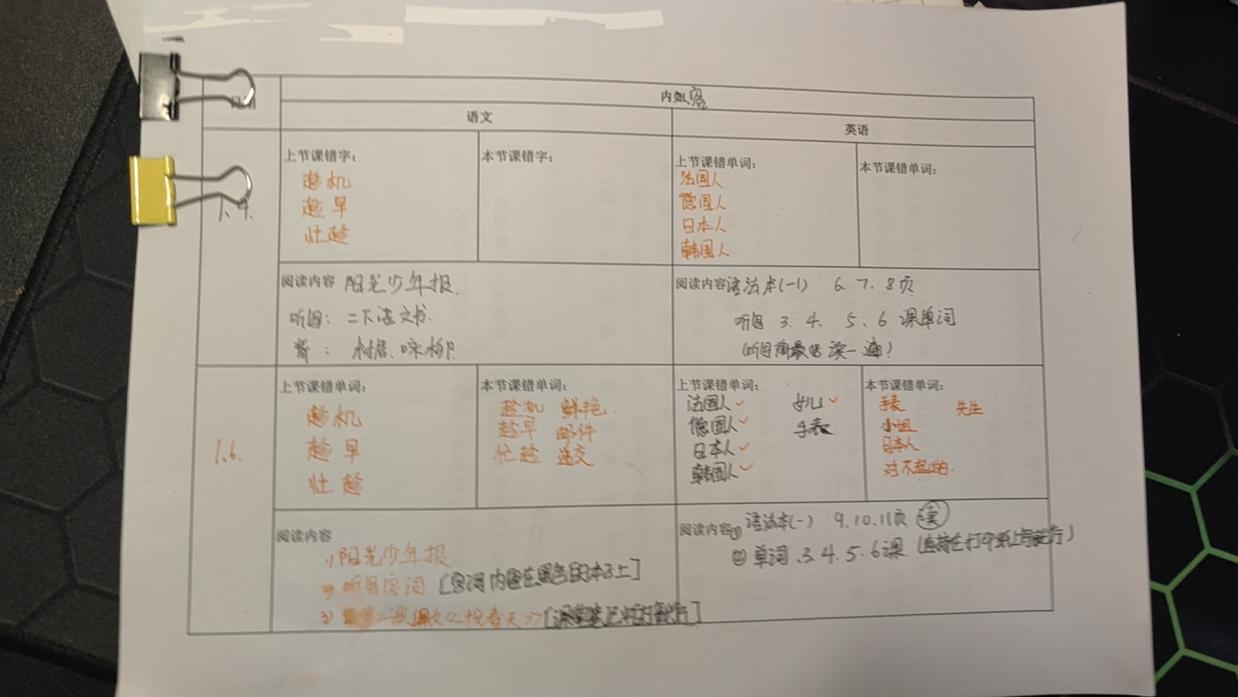 内容
语文
英语
上节课错字:
趁机
趁早
壮趁
本节课错字:
上节课错单词:
法国人
德国人
日本人
韩国人
本节课错单词:
1.4.
阅读内容 阳光少年报.
听写: 二下语文书.
背: 村居、咏柳
阅读内容 语法本(一) 6、7、8页
听写 3. 4. 5. 6 课单词
读一遍!
1.6.
上节课错单词:
趁机
趁早
壮趁
本节课错单词:
趁机 鲜艳.
趁早 邮件
递交
上节课错单词:
法国人✓ 女儿✓
德国人✓ 手表
日本人✓
韩国人✓
本节课错单词:
手表 先生
小姐
日本人
对不起的.
阅读内容
1)阳光少年报
2)听写字词 [字词内容在黑色的本子上]
3) 课文《找春天》
阅读内容① 语法本(一) 9.10.11页 读
② 单词.3.4.5.6课